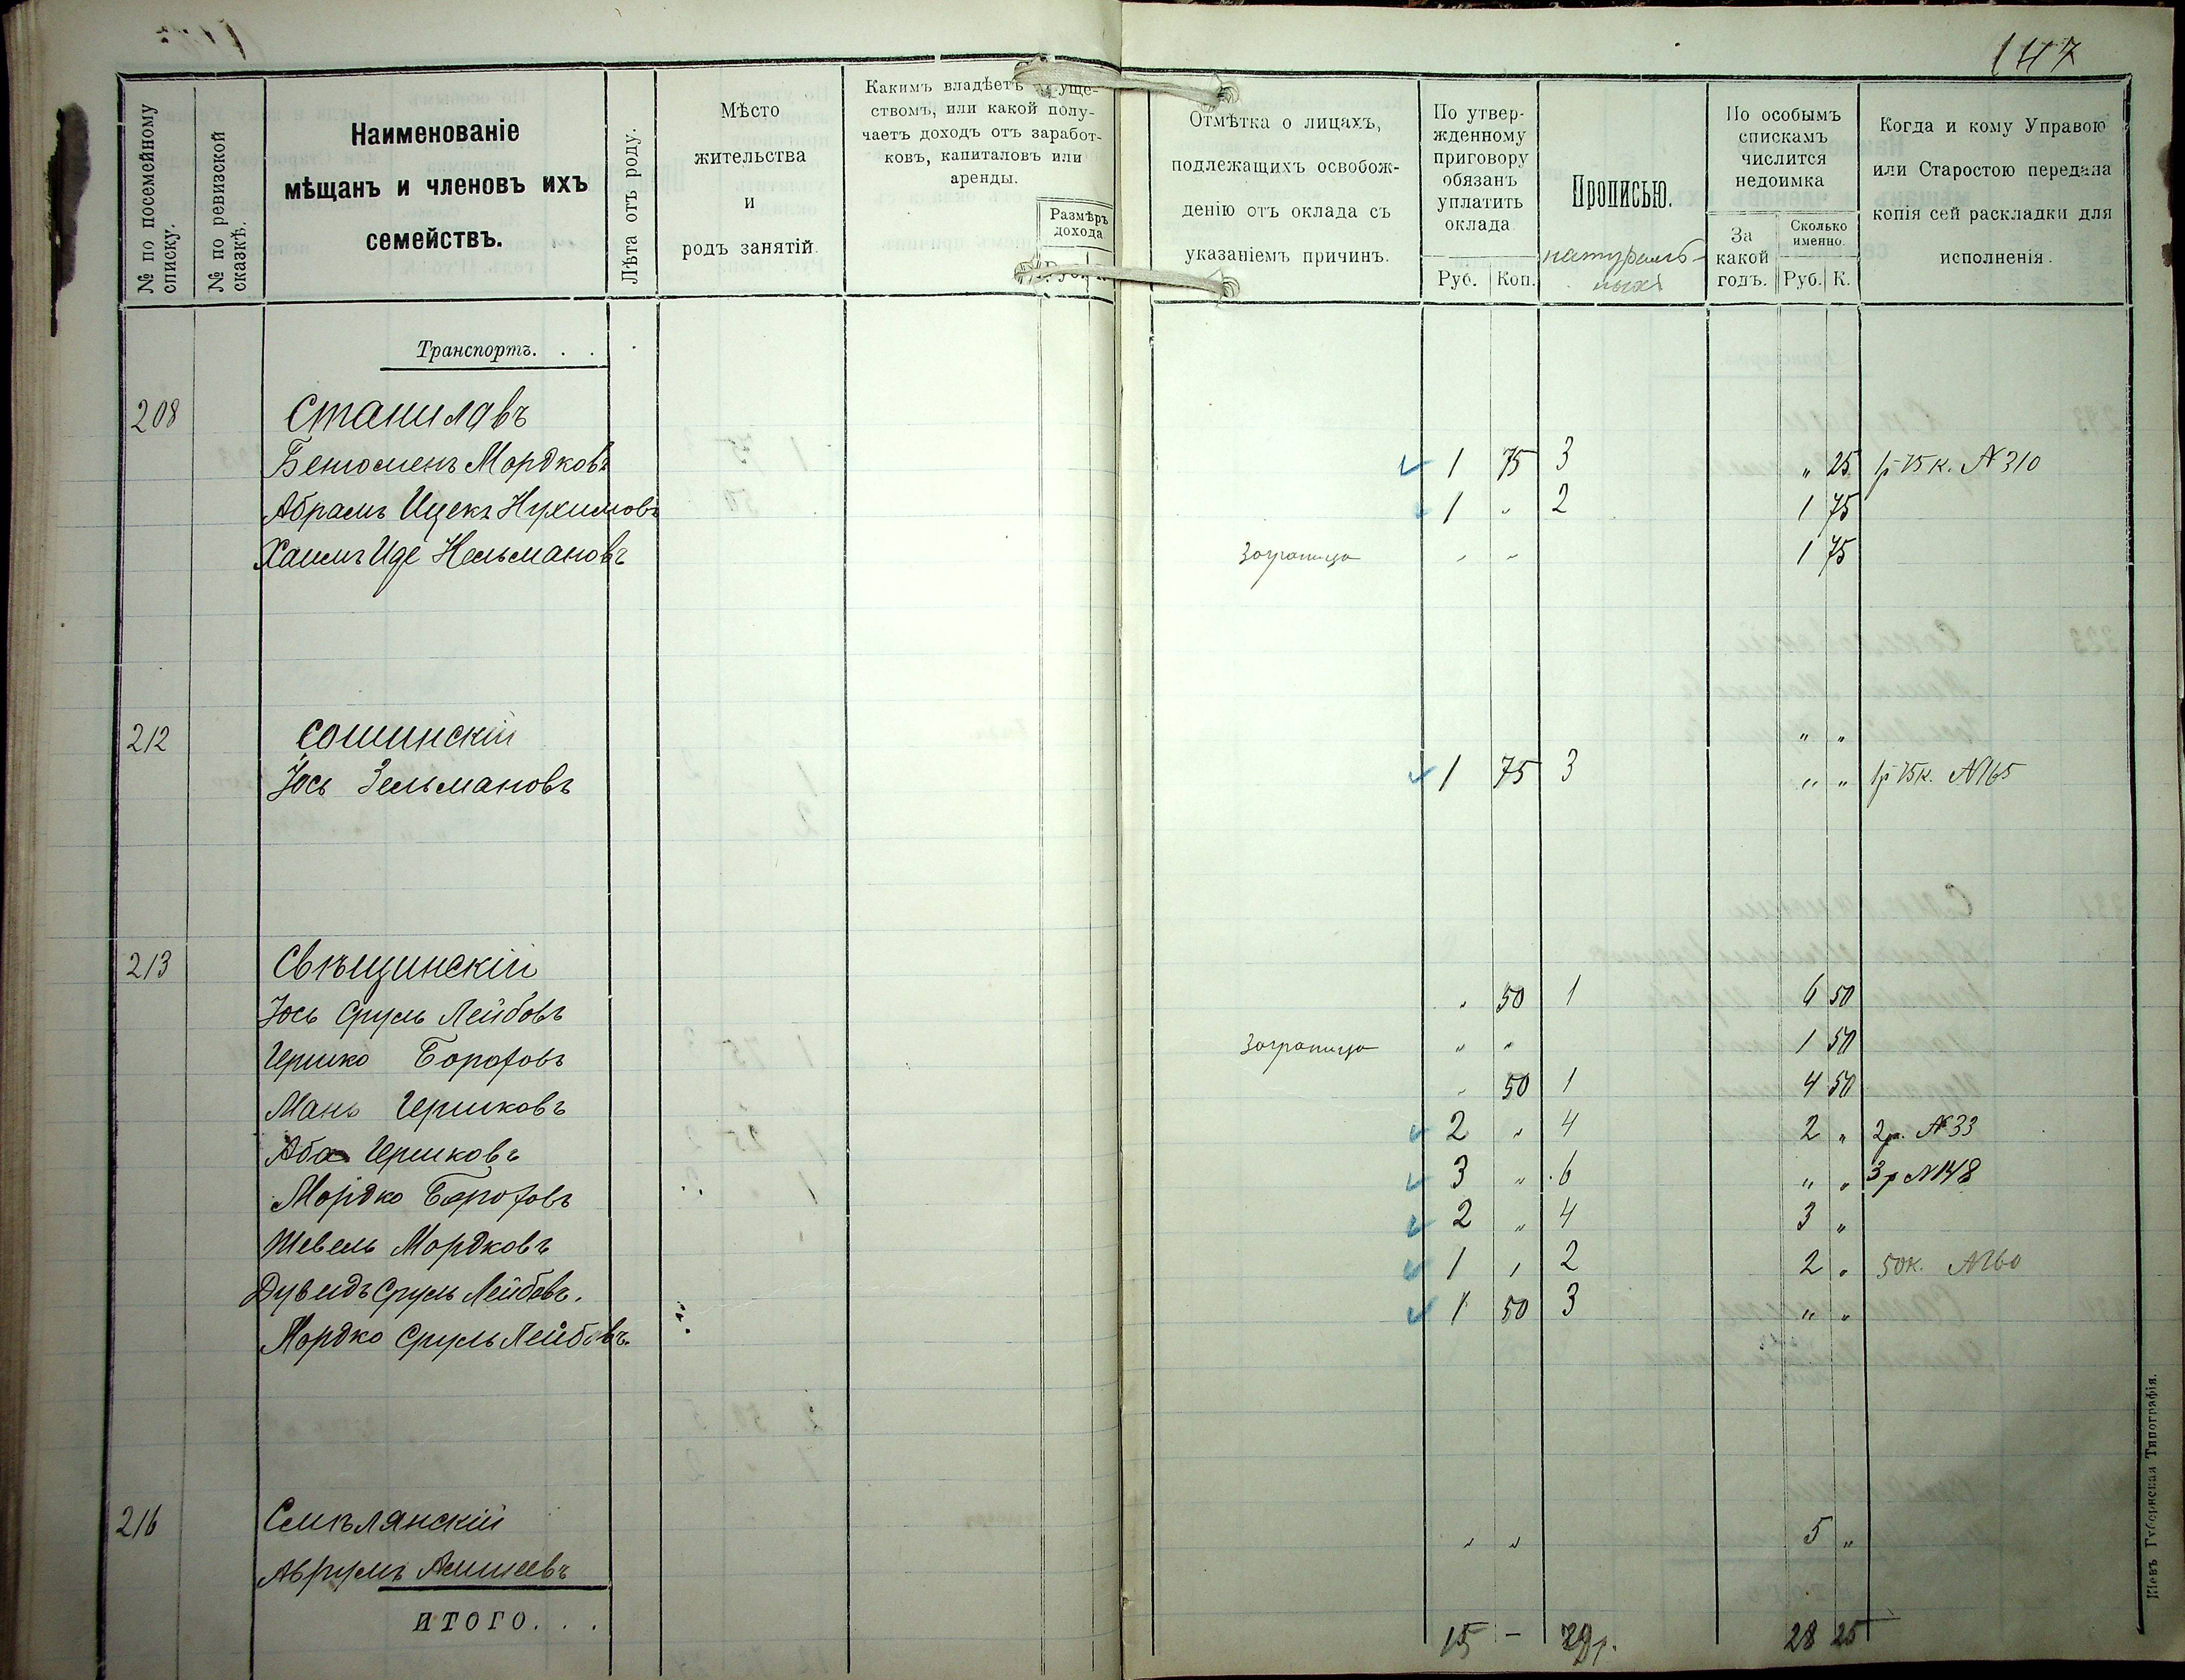 147
№ по посемейному списку.
№ по ревизской сказкѣ.
Наименованіе
мѣщанъ и членовъ ихъ
семействъ.
Лѣта отъ роду.
Мѣсто
жительства
и
родъ занятій.
Каким владѣетъ
ствомъ, или какой полу-
чаетъ доходъ отъ заработ-
ковъ, капиталовъ или
аренды.
Размѣръ
дохода
Отмѣтка о лицахъ,
подлежащихъ освобож-
денію отъ оклада съ
указаніемъ причинъ.
По утвер-
жденному
приговору
обязанъ
уплатить
оклада
Руб. Коп.
Прописью.
натураль-
ныхъ
По особымъ
спискамъ
числится
недоимка
За
какой
годъ.
Сколько
именно.
Руб. К.
Когда и кому Управою
или Старостою передана
копія сей раскладки для
исполненія.
Транспортъ. . .
208 Станилавъ
Бенюменъ Мордковъ 1 75 3 " 25 1р 75 к. №310
Абрамъ Ицекъ Нухимовъ 1 " 2 1 75
Хаимъ Иде Нельмановъ заграница " " 1 75
212 Сошинскій " "
Іось Зельмановъ 1 75 3 " " 1р 75к. №165
213 Свѣщинскій
Іось Сруль Лейбовъ " 50 1 6 50
Гершко Бороховъ заграница " " 1 50
Мань Гершковъ " 50 1 4 50
Аба Гершковъ 2 " 4 2 " 2р. №33
Мордко Бороховъ 3 " 6 " " 3р №148
Шевель Мордковъ 2 " 4 3 "
Дувидъ Сруль Лейбовъ. 1 " 2 2 " 50к. №160
Мордко Сруль Лейбовъ. 1 50 3 " "
216 Смѣлянскій " " 5 "
Аврумъ
ИТОГО. . . 15 – 28 25
Кіевъ Губернская Типографія.